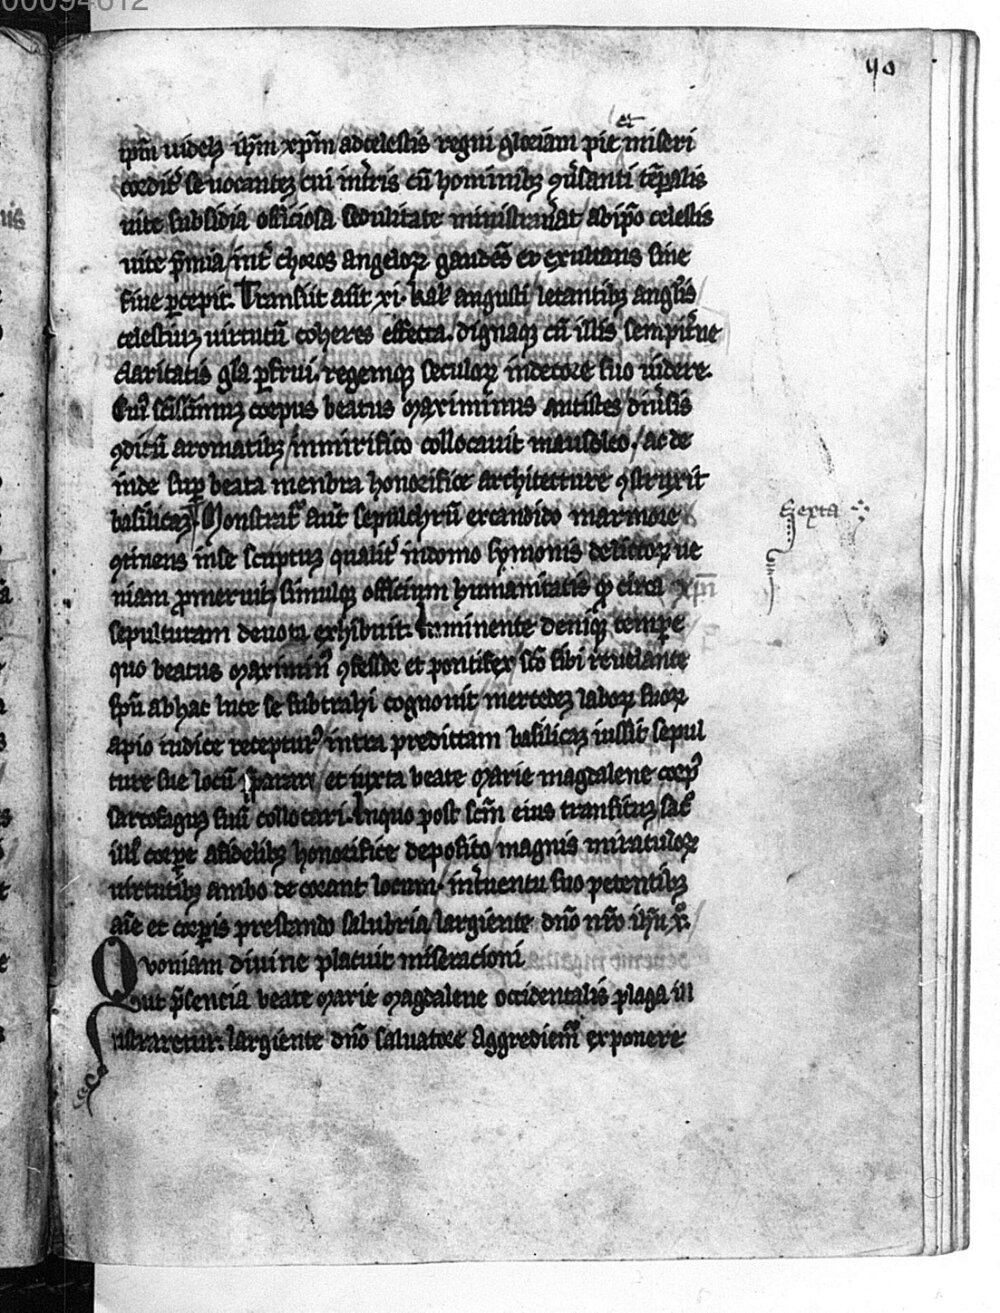 00094612
40
et
ipm̄ uidelꝫ ihm̄ xpm̄ ad celestis regni gloriam pie miseri
cordit᷑ se uocanteꝫ cui in t̄ris cū hominibꝫ ꝯu̓santi tēꝑalis
uite subsidia officiosa sedulitate ministrau̓at ab ip̄o celestis
uite p̄mia / int̓ choros angeloꝝ gaudēs et exultans sine
fine ꝑcepit. Transiit aūt .xi. kal̓ augusti / letantibꝫ angl̓is
celestiuꝫ uirtutū coheres effecta. dignaqꝫ cū illis sempit̓ne
claritatis gl̄a ꝑfrui. regemqꝫ seculoꝝ in decore suo uidere.
Cui᷒ sc̄issimuꝫ corpus beatus maximinus antistes diu̓sis
ꝯditū aromatibꝫ / in mirifico collocauit mausoleo / ac de
inde suꝑ beata menbra honorifice architecture ꝯstruxit
basilicaꝫ. Monstrat᷑ aūt sepulchrū ex candido marmore
ꝯtinens in se scriptuꝫ qualit̓ in domo symonis delictoꝝ ue
niam ꝓmeruit / simulqꝫ officium humanitatis qd̓ circa xpm̄
sepulturam deuota exhibuit. Imminente deniqꝫ tempe
quo beatus maximin᷒ ꝯfessor et pontifex sc̄o sibi reuelante
spū ab hac luce se subtrahi cognouit mercedeꝫ laboꝝ suoꝝ
a pio iudice receptur᷒ / intra predictam basilicaꝫ iussit sepul
ture sue locū p̄parari et iuxta beate marie magdalene corp᷒
sarcofaguꝫ suū collocari. In quo post sc̄m eius transituꝫ sac̓
illi᷒ corꝑe a fidelibꝫ honorifice deposito / magnis miraculoꝝ
uirtutibꝫ ambo decorant locum. int̓uentu suo petentibꝫ
aīe et corꝑis prestando salubria / largiente dn̄o nr̄o ihū x̄.
Quoniam diuine placuit miseracioni
ut p̄sencia beate marie magdalene occidentalis plaga ill
ustraretur. largiente dn̄o saluatore aggrediem᷒ exponere
Sexta